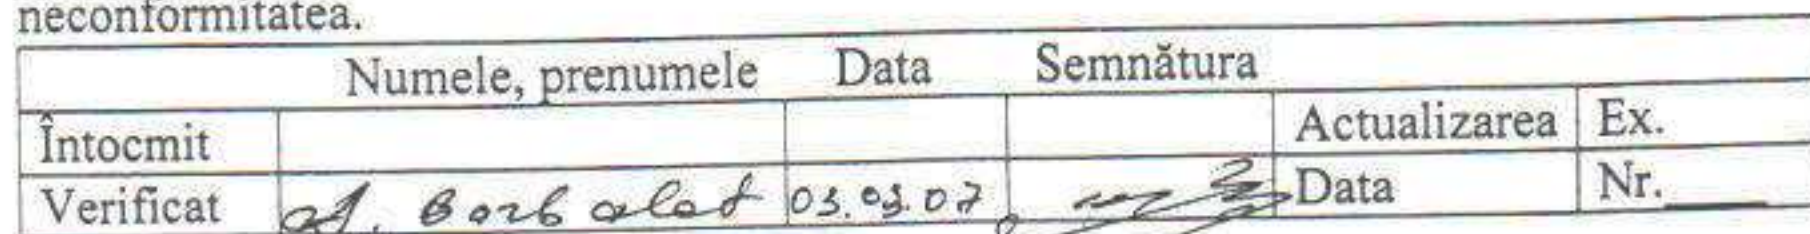 neconformitatea.
Numele, prenumele Data Semnătura
Întocmit Actualizarea Ex.
Verificat Borbalat 03.03.07 Data Nr.____